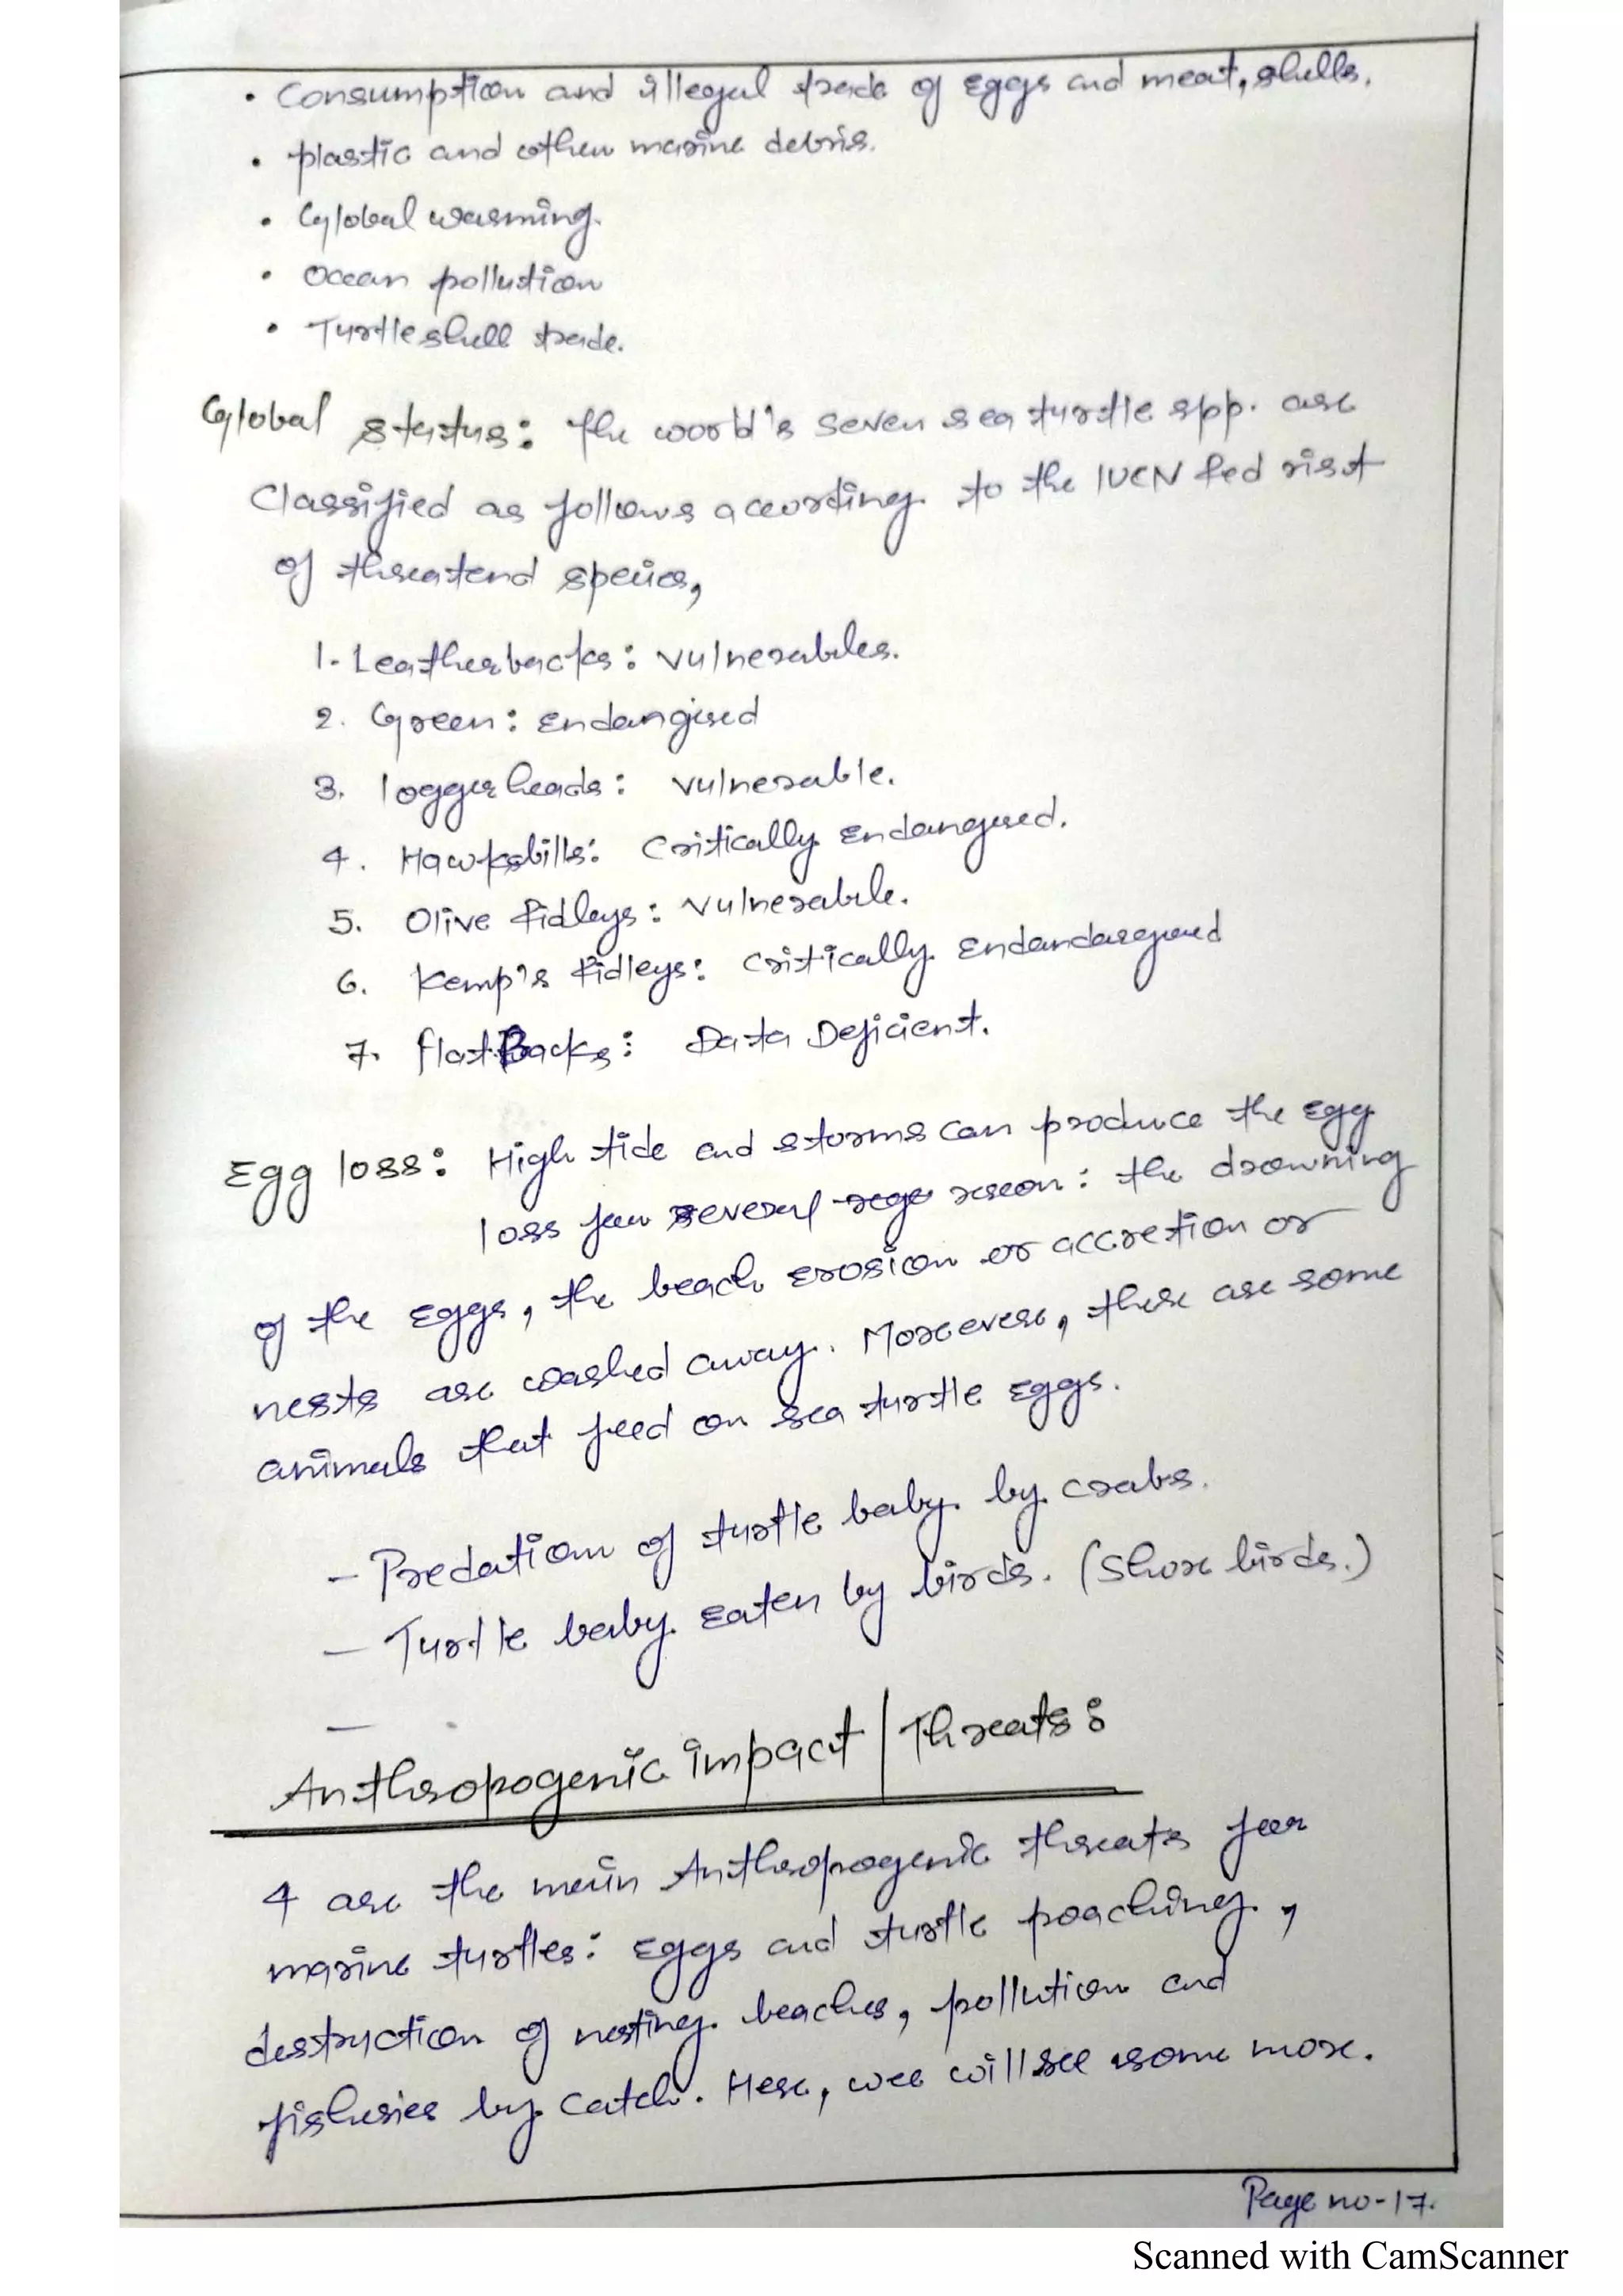 • Consumption and illegal trade of Eggs and meat, shells.
• plastic and other marine debris.
• Global warming.
• Ocean pollution
• Turtle shell trade.
Global status: The world's seven sea turtle spp. are
Classified as follows according to the IUCN Red list
of threatend species,
1. Leatherbacks: vulnerables.
2. Green: Endangered
3. loggerheads: vulnerable.
4. Hawksbills: Critically Endangered.
5. Olive Ridleys: vulnerable.
6. Kemp's Ridleys: Critically Endandargered
7. flatBacks: Data Deficient.
Egg loss: High tide and storms can produce the Egg
loss for several reason: the drowning
of the Eggs, the beach Erosion or accretion or
nests are washed away. Moreevere, there are some
animals that feed on sea turtle Eggs.
- Predation of turtle baby by crabs.
- Turtle baby Eaten by birds. (Shore birds.)
-
Anthropogenic impact / Threats:
4 are the main Anthropogenic threats for
marine turtles: Eggs and turtle poaching,
destruction of nesting beaches, pollution and
fisheries by catch. Here, wee will see some more.
Page no-17.
Scanned with CamScanner